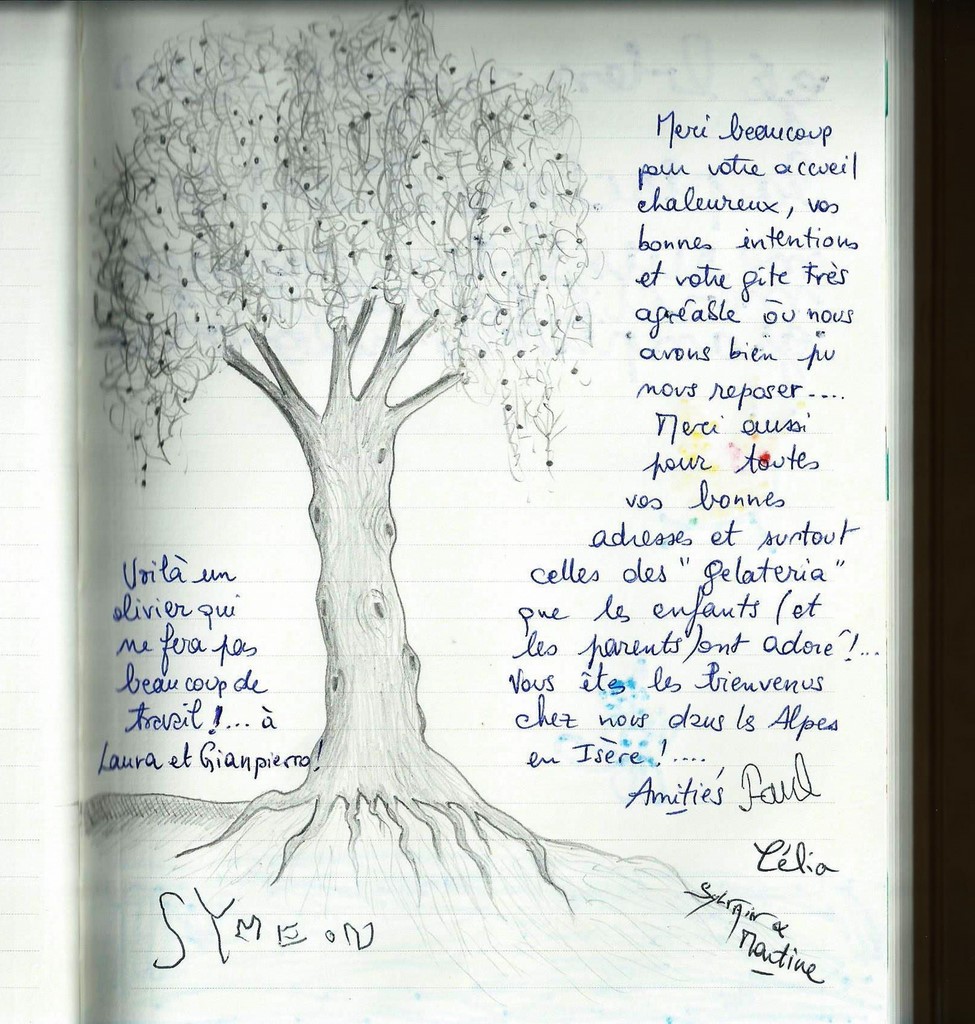 Merci beaucoup
pour votre accueil
chaleureux, vos
bonnes intentions
et votre gîte très
agréable où nous
avons bien pu
nous reposer....
Merci aussi
pour toutes
vos bonnes
adresses et surtout
celles des "gelateria"
que les enfants (et
les parents) ont adoré!...
Vous êtes les bienvenus
chez nous dans les Alpes
en Isère!....
Amitiés Paul
Célia
Sylvain &
Martine
Voilà un
olivier qui
ne fera pas
beaucoup de
travail!... à
Laura et Gianpierro!
SYMEON